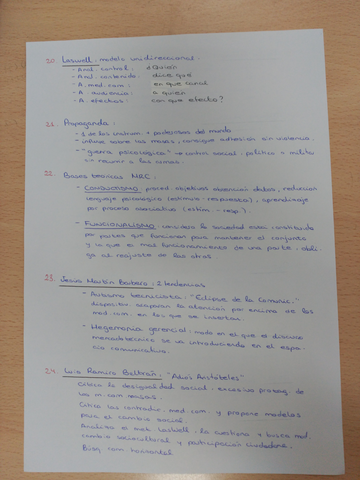 20. Laswell: modelo unidireccional.
- Anal. control: ¿Quién
- Anal. contenido: dice qué
- A. med. com: en que canal
- A. audiencia: a quién
- A. efectos: con que efecto?
21. Propaganda:
- 1 de los instrum + poderosos del mundo
- influye sobre las masas, consigue adhesión sin violencia.
- "guerra psicológica" → control social, político + militar
sin recurrir a las armas.
22. Bases teóricas MRC:
- CONDUCTISMO: proced. objetivos datos,
lenguaje psicológico (estímulo: respuesta), aprendizaje
por proceso asociativo (estím. - resp.).
- FUNCIONALISMO: considera la sociedad está constituida
por partes que funcionan para mantener el conjunto
y la que el mal funcionamiento de una parte obli-
ga al reajuste de las otras
23. Jesús Martín Barbero: 2 tendencias
- Autismo tecnicista: "Eclipse de la Comunic."
dispositiv. acaparan la atención por encima de los
med. com. en los que se insertan.
- Hegemonía gerencial: modo en el que el discurso
mercadotécnico se va introduciendo en el espa-
cio comunicativo.
24. Luis Ramiro Beltrán: "Adiós Aristóteles"
Critica la desigualdad social: excesivo protag. de
los m. com masas.
Critica las contradic. med. com. y propone modelos
para el cambio social
Analiza el mod. Laswell, lo cuestiona y busca mod.
cambio sociocultural y participación ciudadana.
Búsq. com. horizontal